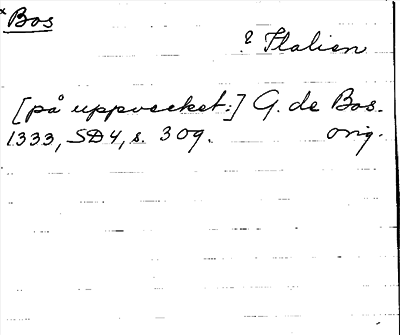 x Bos
? Italien
[på uppvecket:] G. de Bos.
1333, SD4, s. 309. orig.